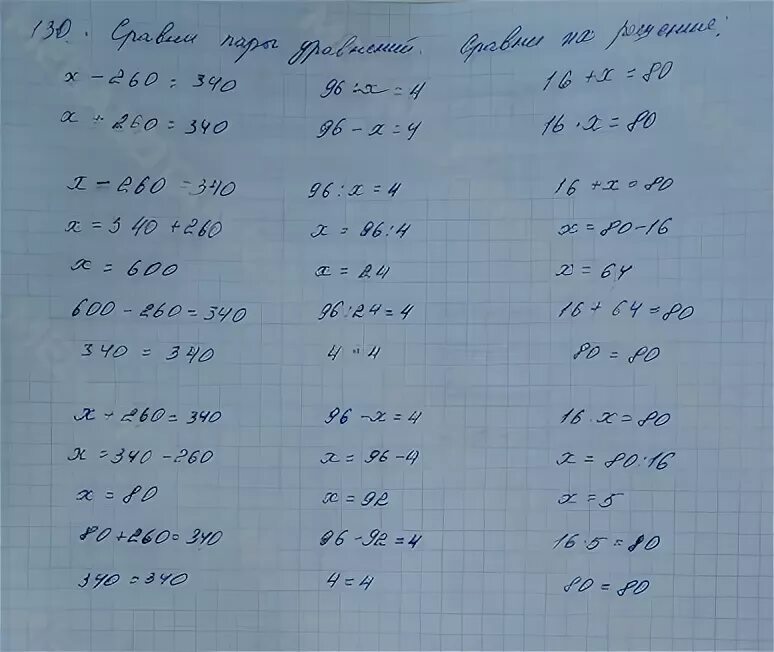 130. Сравни пары уравнений. Сравни их решение:
x - 260 = 340 96 : x = 4 16 + x = 80
x + 260 = 340 96 - x = 4 16 · x = 80
x - 260 = 340 96 : x = 4 16 + x = 80
x = 340 + 260 x = 96 : 4 x = 80 - 16
x = 600 x = 24 x = 64
600 - 260 = 340 96 : 24 = 4 16 + 64 = 80
340 = 340 4 = 4 80 = 80
x + 260 = 340 96 - x = 4 16 · x = 80
x = 340 - 260 x = 96 - 4 x = 80 : 16
x = 80 x = 92 x = 5
80 + 260 = 340 96 - 92 = 4 16 · 5 = 80
340 = 340 4 = 4 80 = 80